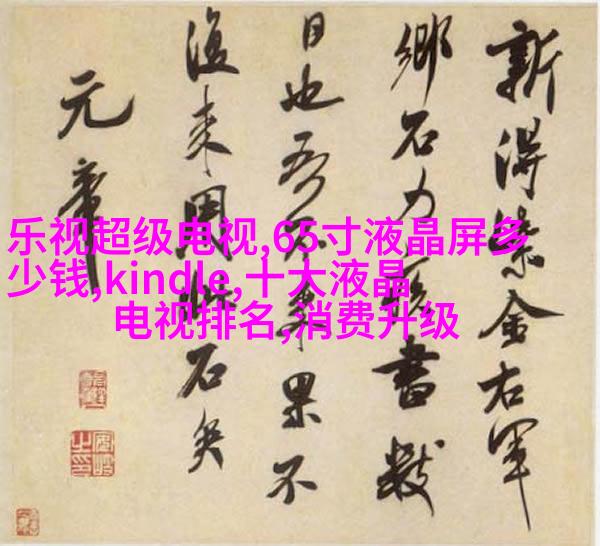 乐视超级电视,65寸液晶屏多
少钱,kindle,十大液晶
电视排名,消费升级
新得紫金右軍
鄉石力疾書數
日也吾不来果不
復来用此石矣
元章